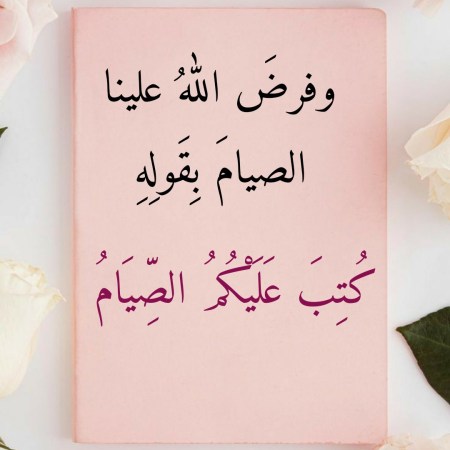 وفرضَ اللهُ علينا
الصيامَ بِقَولِهِ
كُتِبَ عَلَيْكُمُ الصِّيَامُ